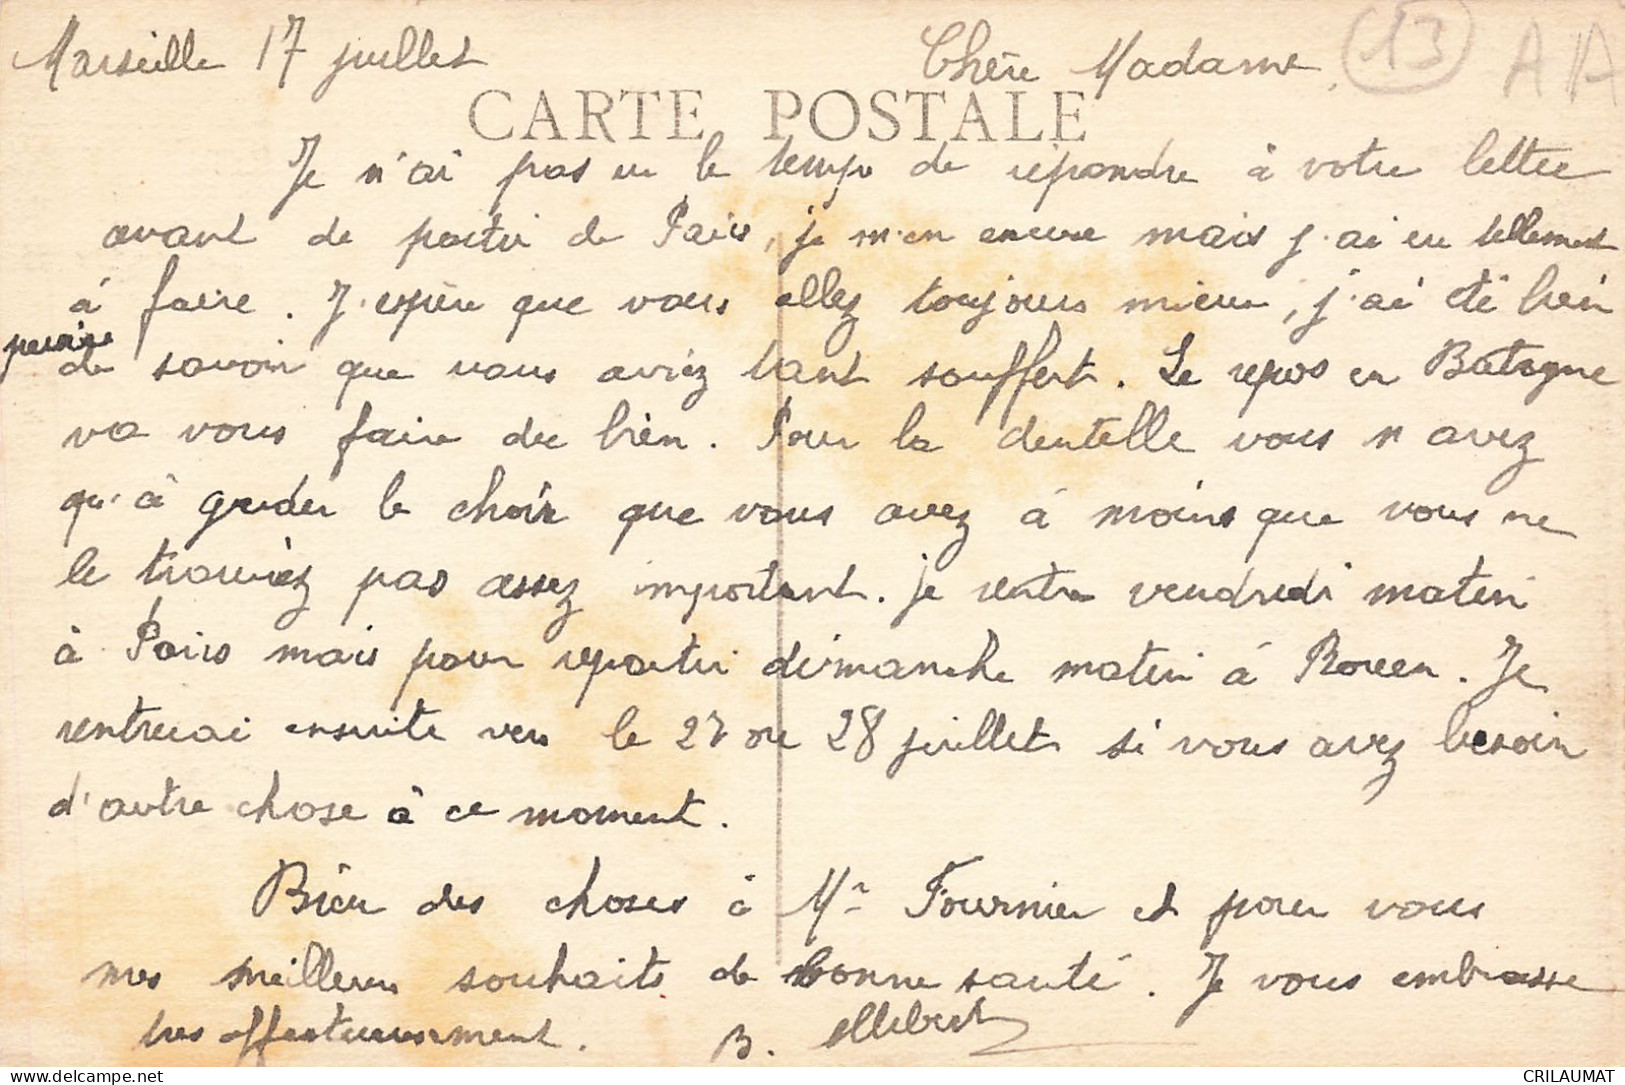 Marseille 17 juillet Chère Madame,
13 AA
CARTE POSTALE
Je n'ai pas eu le temps de répondre à votre lettre
avant de partir de Paris, je m'en excuse mais j'ai eu tellement
à faire. J'espère que vous allez toujours mieux, j'ai été bien
peinée
de savoir que vous aviez tant souffert. Le repos en Bretagne
va vous faire du bien. Pour la dentelle vous n'avez
qu'à garder le choix que vous avez à moins que vous ne
le trouviez pas assez important. Je rentre vendredi matin
à Paris mais pour repartir dimanche matin à Rouen. Je
rentrerai ensuite vers le 27 ou 28 juillet si vous avez besoin
d'autre chose à ce moment.
Bien des choses à Mr Fournier et pour vous
mes meilleurs souhaits de bonne santé. Je vous embrasse
très affectueusement. B.
Delcampe.net
CRILAUMAT